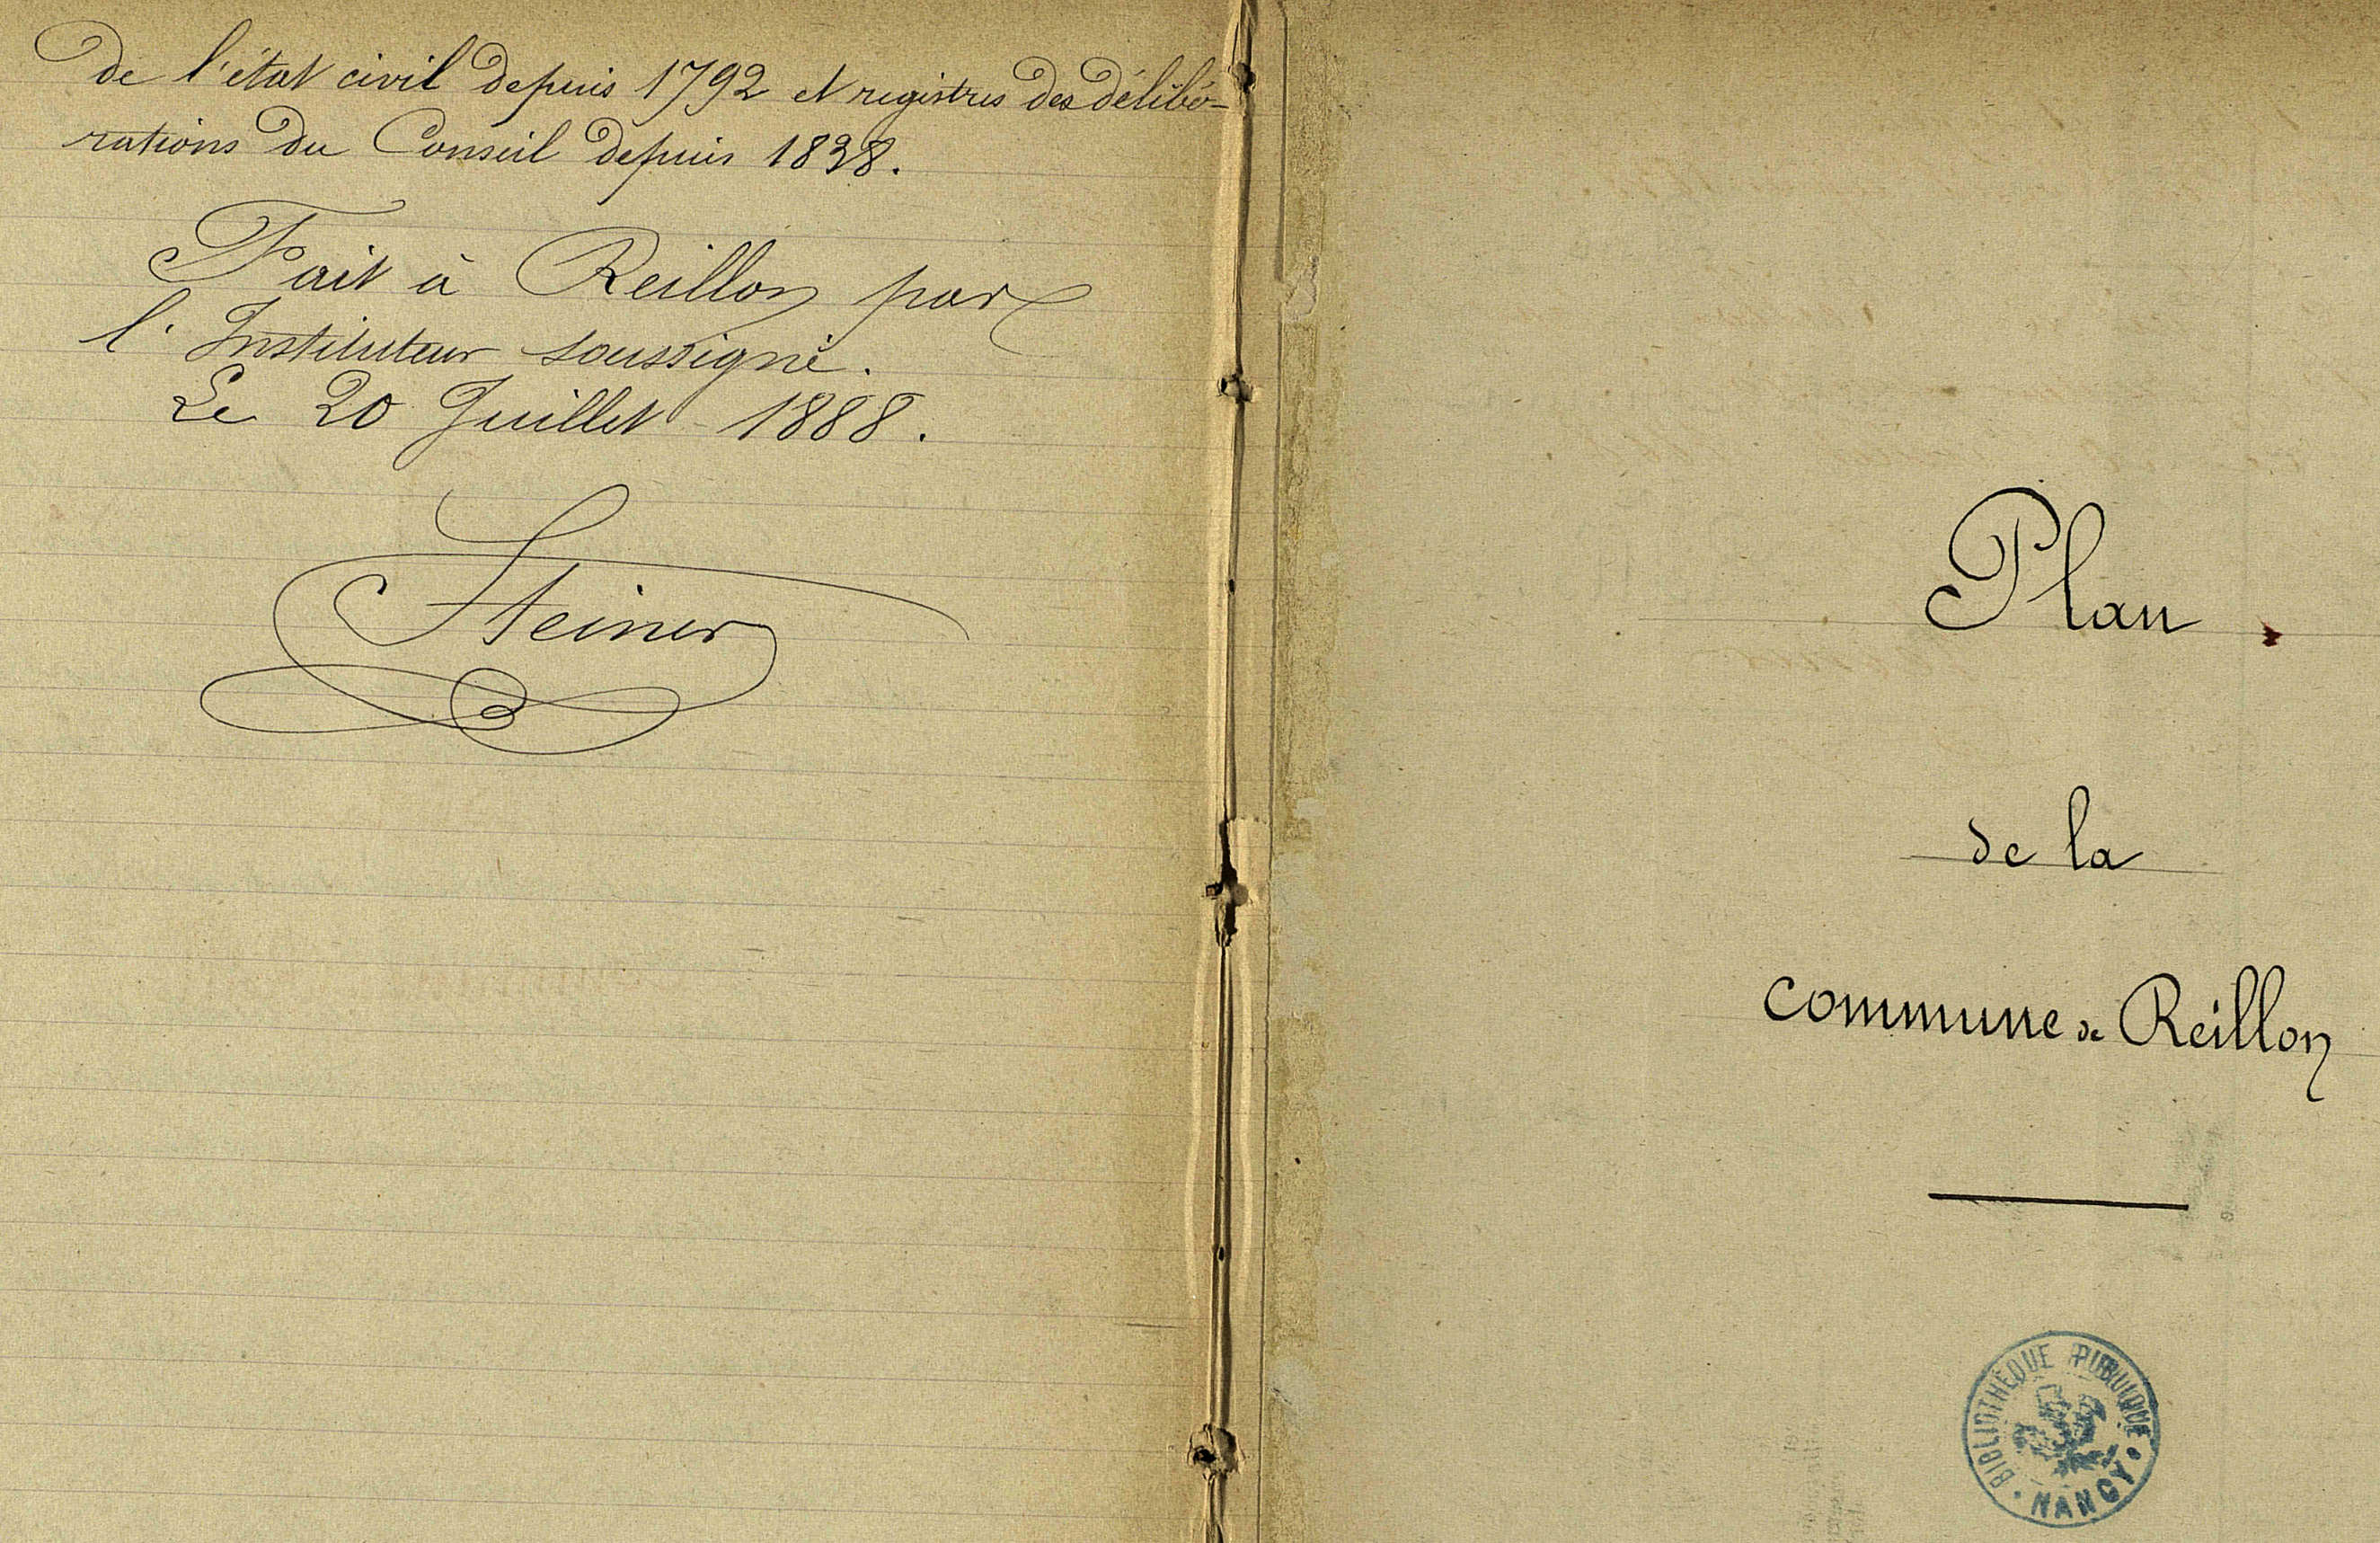 de l'état civil depuis 1792 et registres des délibé-
rations du Conseil depuis 1838.
Fait à Reillon par
l'Instituteur soussigné.
Le 20 Juillet 1888.
Steiner
Plan
de la
commune de Reillon
BIBLIOTHÈQUE PUBLIQUE
NANCY